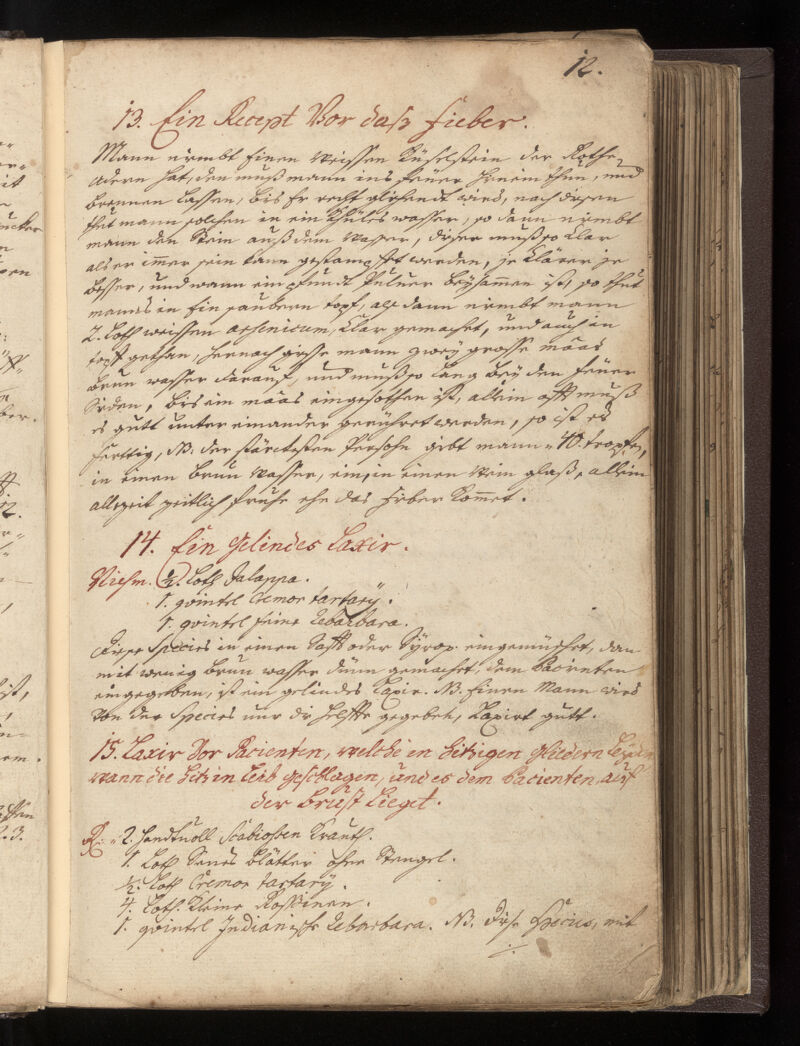 12.
13. Ein Recept Vor daß Fieber.
Mann nimbt Einen weissen Küselstein der Rothe
Adern hat, den muß mann ins feüer hinein thun, und
brennen lassen, bis Er recht glühendt wird, nach disen
thut mann solchen in ein Kühles wasser, so dann nimbt
mann den Stein auß dem wasser, diser muß so klar
als er immer sein kann gestampfft werden, je klärer je
besser, und wann ein pfundt Pulver beysammen ist, so thut
manns in Ein saubern topf, als dann nimbt mann
2. Loth weissen arsenicum, klar gemacht, und auch in
topff gethan, hernach giesse mann zwey grosse määs
brun wasser darauf, und muß so lang bey den feüer
Siden, bis ein määs eingesothen ist, allein offt muß
es gutt unter einander gerühret werden, so ist es
ferttig, NB. der stärckesten Persohn gibt mann 40. tropfen,
in einen brun wasser, ein, in einen Wein glaß, allein
allezeit zeitlich fruhe ehe das fieber kommet.
14. Ein gelindes Laxir.
Niehm. ½. Loth Jalappa.
1. quintel Cremor tartary.
1. quintel feine Rebarbara.
Diese Species in einen Safft oder Syrop. eingemüschet, dan
mit wenig brun wasser dünn gemacht, dem Pacienten
eingegeben, ist ein gelindes Laxir. NB. Einen Mann wird
von der Species nur die helffte gegeben, Laxirt gutt.
15. Laxir Vor Pacienten, welche in hitzigen gliedern
wann die hitz in Leib geschlagen, und es dem Pacienten auf
der brust Lieget.
Rx: 2. handtvoll Scabiosen Krauth.
1. Loth Senes blätter ohne Stengel.
½. Loth Cremor tartary.
4. Loth. Kleine Rossinen.
1. quintel Indianische Rebarbara. NB. Dise Species, mit